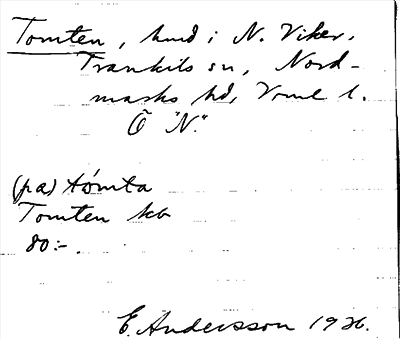 Tomten, hmd i N. Viker,
Trankils sn, Nord-
marks hd, Vrml l.
Ö "N."
(pæ) tómta
Tomten kb
80:-.
E. Andersson 1926.